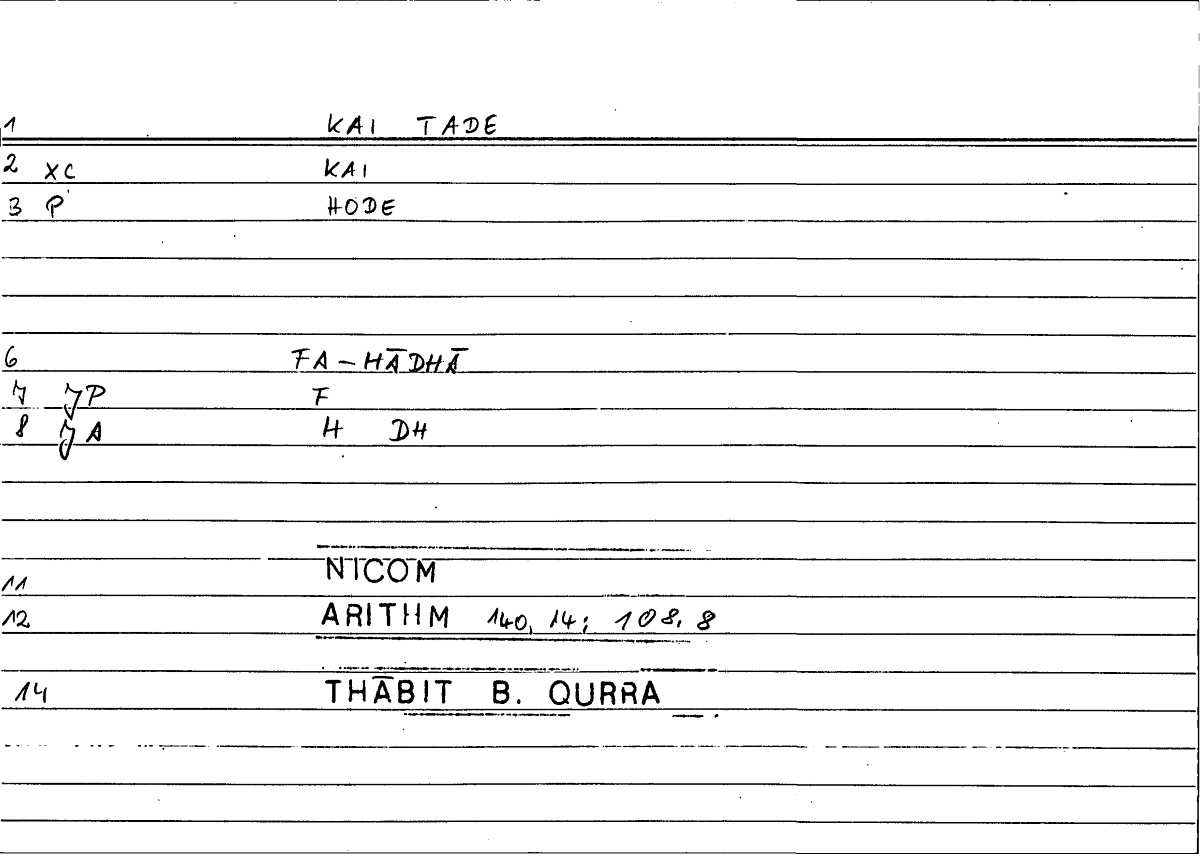 1 KAI TADE
2 XC KAI
3 P HODE
6 FA-HĀDHĀ
7 JP F
8 JA H DH
11 NICOM
12 ARITHM 140, 14; 108, 8
14 THĀBIT B. QURRA